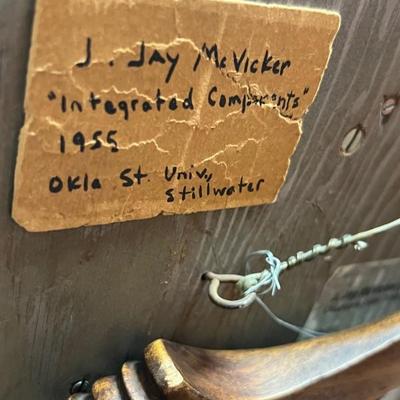 J. Jay McVicker
"Integrated Components"
1955
Okla St. Univ.,
Stillwater